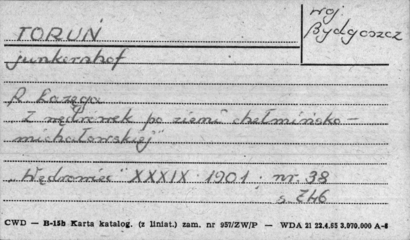 TORUŃ
woj.
Bydgoszcz
junkerhof
R Łazęga
"Z wędrówek po ziemi chełmińsko-
michałowskiej"
"Wędrowiec" XXXIX 1901 nr 38
s. 746
CWD — B-15b Karta katalog. (z liniat.) zam. nr 957/ZW/P — WDA 21 22.4.65 3.070.000 A-6